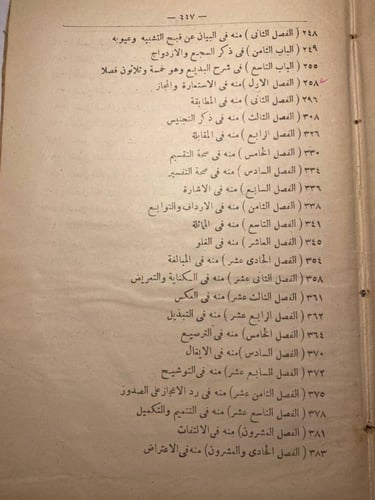 — ٤٤٧ —
٢٤٨ ( الفصل الثانى ) منه فى البيان عن قبح التشبيه وعيوبه
٢٤٩ ( الباب الثامن ) فى ذكر السجع والازدواج
٢٥٥ ( الباب التاسع ) فى شرح البديع وهو خمسة وثلاثون فصلا
٢٥٨ ( الفصل الاول ) منه فى الاستعارة والمجاز
٢٩٦ ( الفصل الثانى ) منه فى المطابقة
٣٠٨ ( الفصل الثالث ) منه فى ذكر التجنيس
٣٢٦ ( الفصل الرابع ) منه فى المقابلة
٣٣٠ ( الفصل الخامس ) منه فى صحة التقسيم
٣٣٤ ( الفصل السادس ) منه فى صحة التفسير
٣٣٦ ( الفصل السابع ) منه فى الاشارة
٣٣٨ ( الفصل الثامن ) منه فى الارداف والتوابع
٣٤١ ( الفصل التاسع ) منه فى المماثلة
٣٤٥ ( الفصل العاشر ) منه فى الغلو
٣٥٤ ( الفصل الحادى عشر ) منه فى المبالغة
٣٥٨ ( الفصل الثانى عشر ) منه فى الكناية والتعريض
٣٦١ ( الفصل الثالث عشر ) منه فى العكس
٣٦٢ ( الفصل الرابع عشر ) منه فى التذييل
٣٦٤ ( الفصل الخامس ) منه فى الترصيع
٣٧٠ ( الفصل السادس ) منه فى الايغال
٣٧٢ ( الفصل السابع عشر ) منه فى التوشيح
٣٧٥ ( الفصل الثامن عشر ) منه فى رد الاعجاز على الصدور
٣٧٨ ( الفصل التاسع عشر ) منه فى التتميم والتكميل
٣٨١ ( الفصل العشرون ) منه فى الالتفات
٣٨٣ ( الفصل الحادى والعشرون ) منه فى الاعتراض